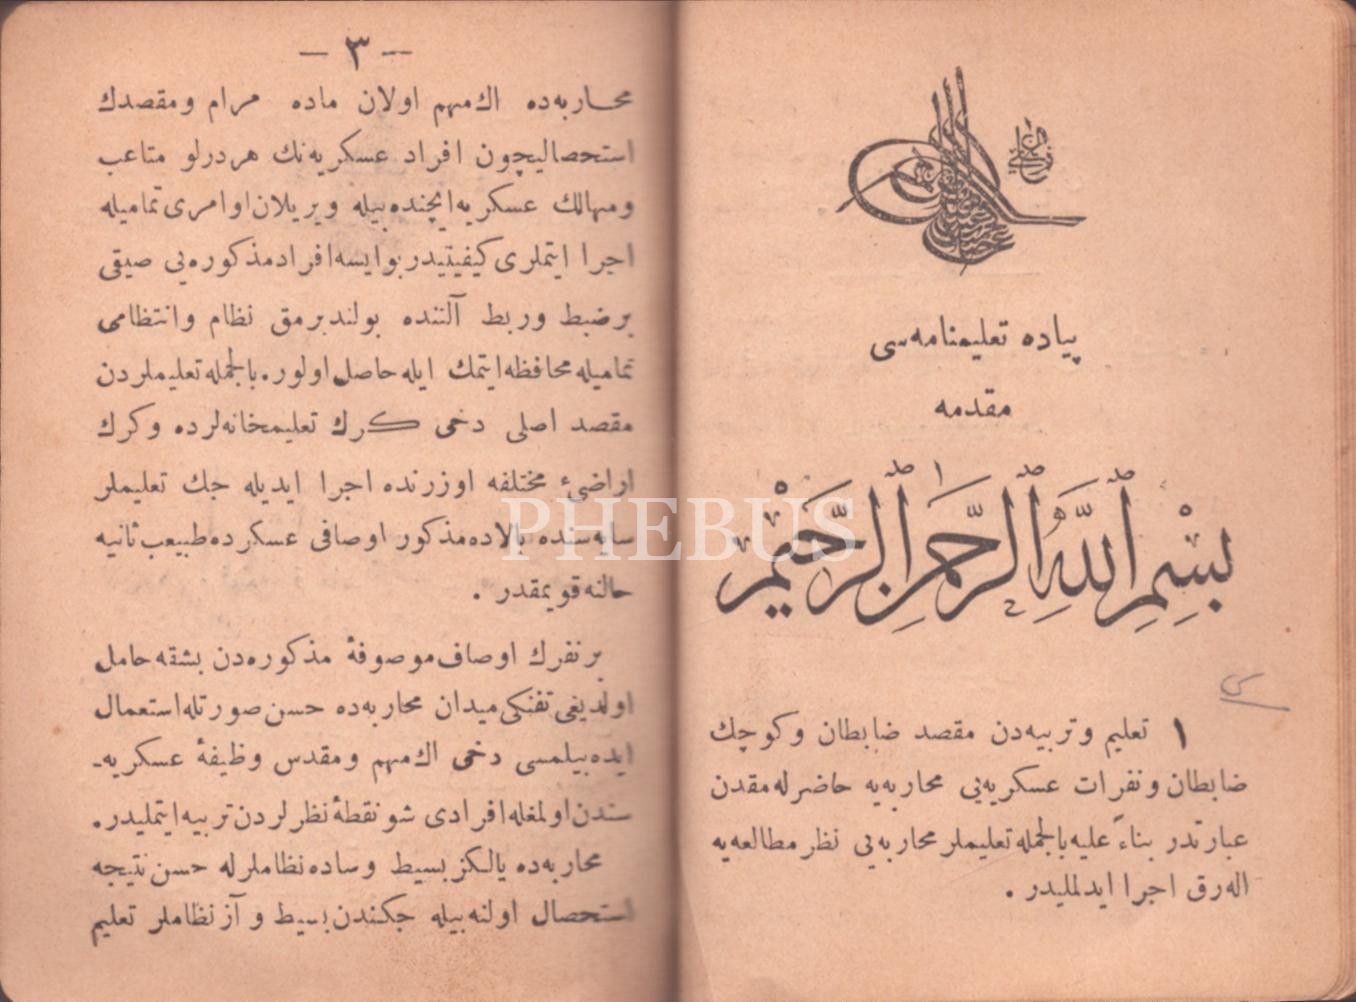 پیاده تعلیمنامه‌سی
مقدمه
بِسْمِ اللّٰهِ الرَّحْمٰنِ الرَّحِيْمِ
١ تعلیم و تربیه‌دن مقصد ضابطان و كوچك
ضابطان و نفرات عسكریه‌یی محاربه‌یه حاضرله‌مقدن
عبارتدر بناءً علیه بالجمله تعلیملر محاربه‌یی نظر مطالعه‌یه
اله‌رق اجرا ایدلملیدر .
— ٣ —
محاربه‌ده اك مهم اولان ماده مرام و مقصدك
استحصالیچون افراد عسكریه‌نك هر درلو متاعب
و مهالك عسكریه ایچنده بیله ویریلان اوامری تمامیله
اجرا ایتملری كیفیتیدر بو ایسه افراد مذكوره‌یی صیقی
بر ضبط و ربط آلتنده بولندیرمق نظام و انتظامی
تمامیله محافظه ایتمك ایله حاصل اولور . بالجمله تعلیملردن
مقصد اصلی دخی كرك تعلیمخانه‌لرده و كرك
اراضئ مختلفه اوزرنده اجرا ایدیله جك تعلیملر
سایه‌سنده بالاده مذكور اوصافی عسكرده طبیعت ثانیه
حالنه قویمقدر .
بر نفرك اوصاف موصوفهٔ مذكوره‌دن بشقه حامل
اولدیغی تفنكی میدان محاربه‌ده حسن صورتله استعمال
ایده بیلمسی دخی اك مهم و مقدس وظیفهٔ عسكریه-
سندن اولمغله افرادی شو نقطهٔ نظرلردن تربیه ایتملیدر .
محاربه‌ده یالكز بسیط و ساده نظاملر له حسن نتیجه
استحصال اولنه بیله جكندن بسیط و آز نظاملر تعلیم
PHEBUS